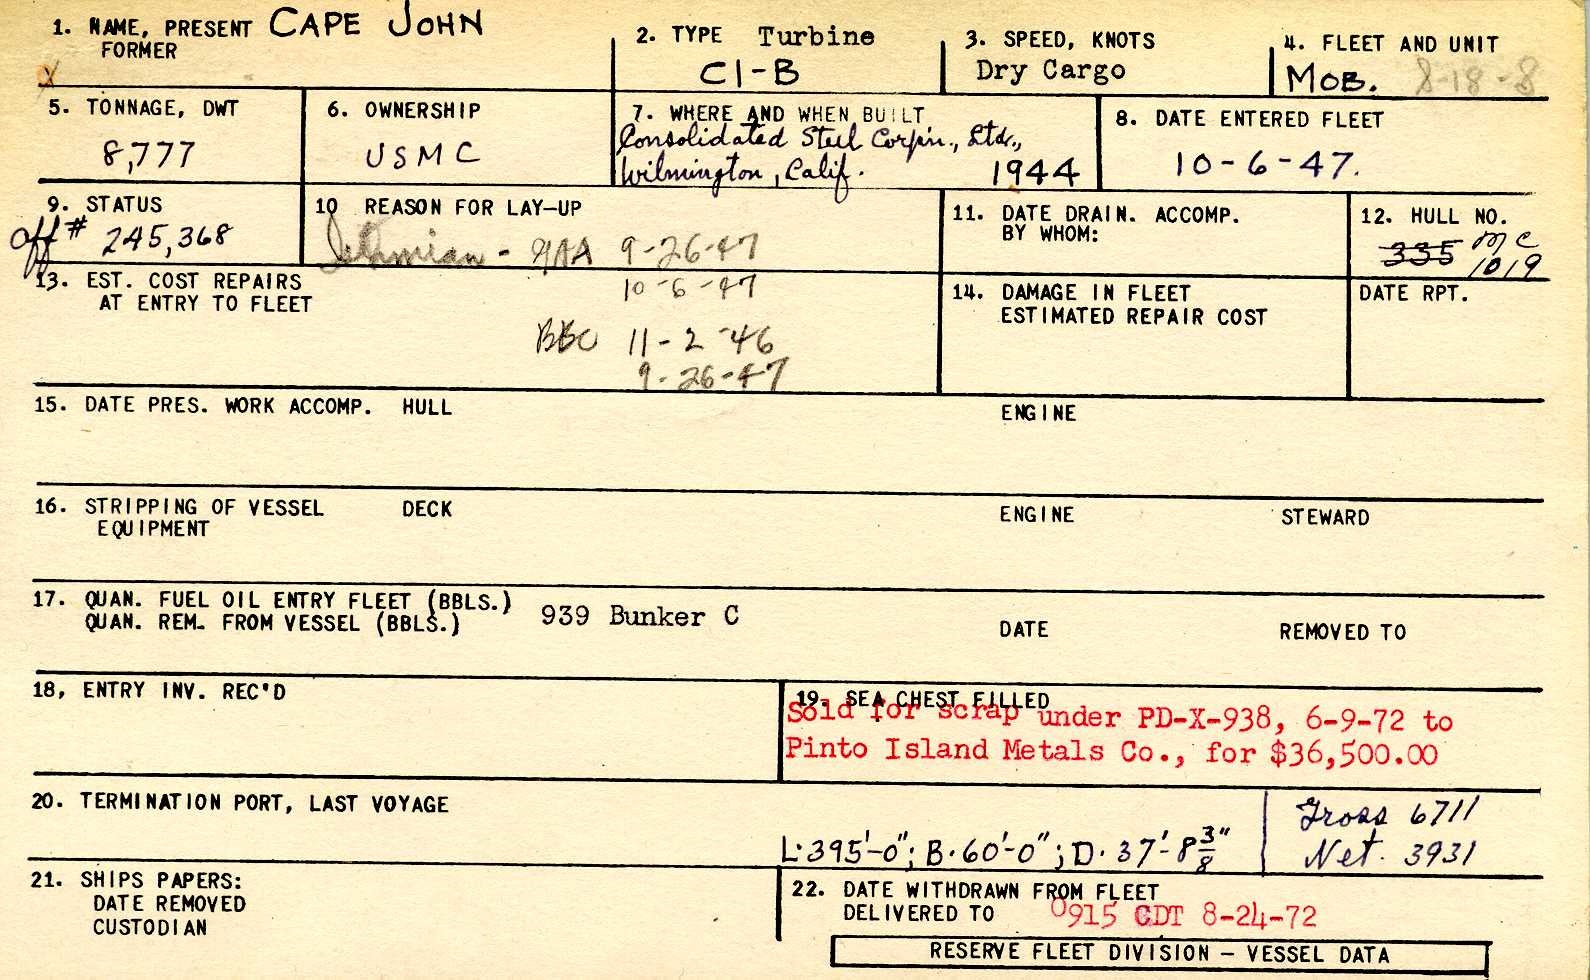 1. NAME, PRESENT CAPE JOHN
FORMER
2. TYPE Turbine
C1-B
3. SPEED, KNOTS
Dry Cargo
4. FLEET AND UNIT
MOB. 8-18-8
5. TONNAGE, DWT
8,777
6. OWNERSHIP
USMC
7. WHERE AND WHEN BUILT
Consolidated Steel Corp'n., Ltd.,
Wilmington, Calif. 1944
8. DATE ENTERED FLEET
10-6-47.
9. STATUS
off # 245,368
10 REASON FOR LAY-UP
Isthmian - GAA 9-26-47
10-6-47
BBC 11-2-46
9-26-47
11. DATE DRAIN. ACCOMP.
BY WHOM:
12. HULL NO.
335 MC
1019
13. EST. COST REPAIRS
AT ENTRY TO FLEET
14. DAMAGE IN FLEET
ESTIMATED REPAIR COST
DATE RPT.
15. DATE PRES. WORK ACCOMP. HULL ENGINE
16. STRIPPING OF VESSEL DECK ENGINE STEWARD
EQUIPMENT
17. QUAN. FUEL OIL ENTRY FLEET (BBLS.) 939 Bunker C
QUAN. REM. FROM VESSEL (BBLS.) DATE REMOVED TO
18, ENTRY INV. REC'D
19. SEA CHEST FILLED
Sold for scrap under PD-X-938, 6-9-72 to
Pinto Island Metals Co., for $36,500.00
20. TERMINATION PORT, LAST VOYAGE
L.395'-0"; B.60'-0"; D.37'-8 3/8"
Gross 6711
Net. 3931
21. SHIPS PAPERS:
DATE REMOVED
CUSTODIAN
22. DATE WITHDRAWN FROM FLEET
DELIVERED TO 0915 CDT 8-24-72
RESERVE FLEET DIVISION – VESSEL DATA